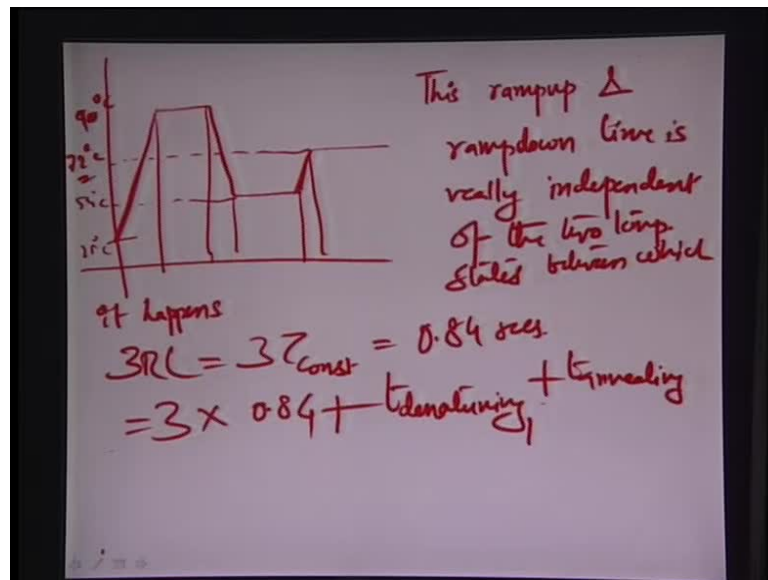 This rampup &
rampdown time is
really independent
of the two temp.
states between which
it happens
90°C
72°C
55°C
25°C
3RC = 3τconst = 0.84 secs.
= 3 × 0.84 + tdenaturing, + tannealing